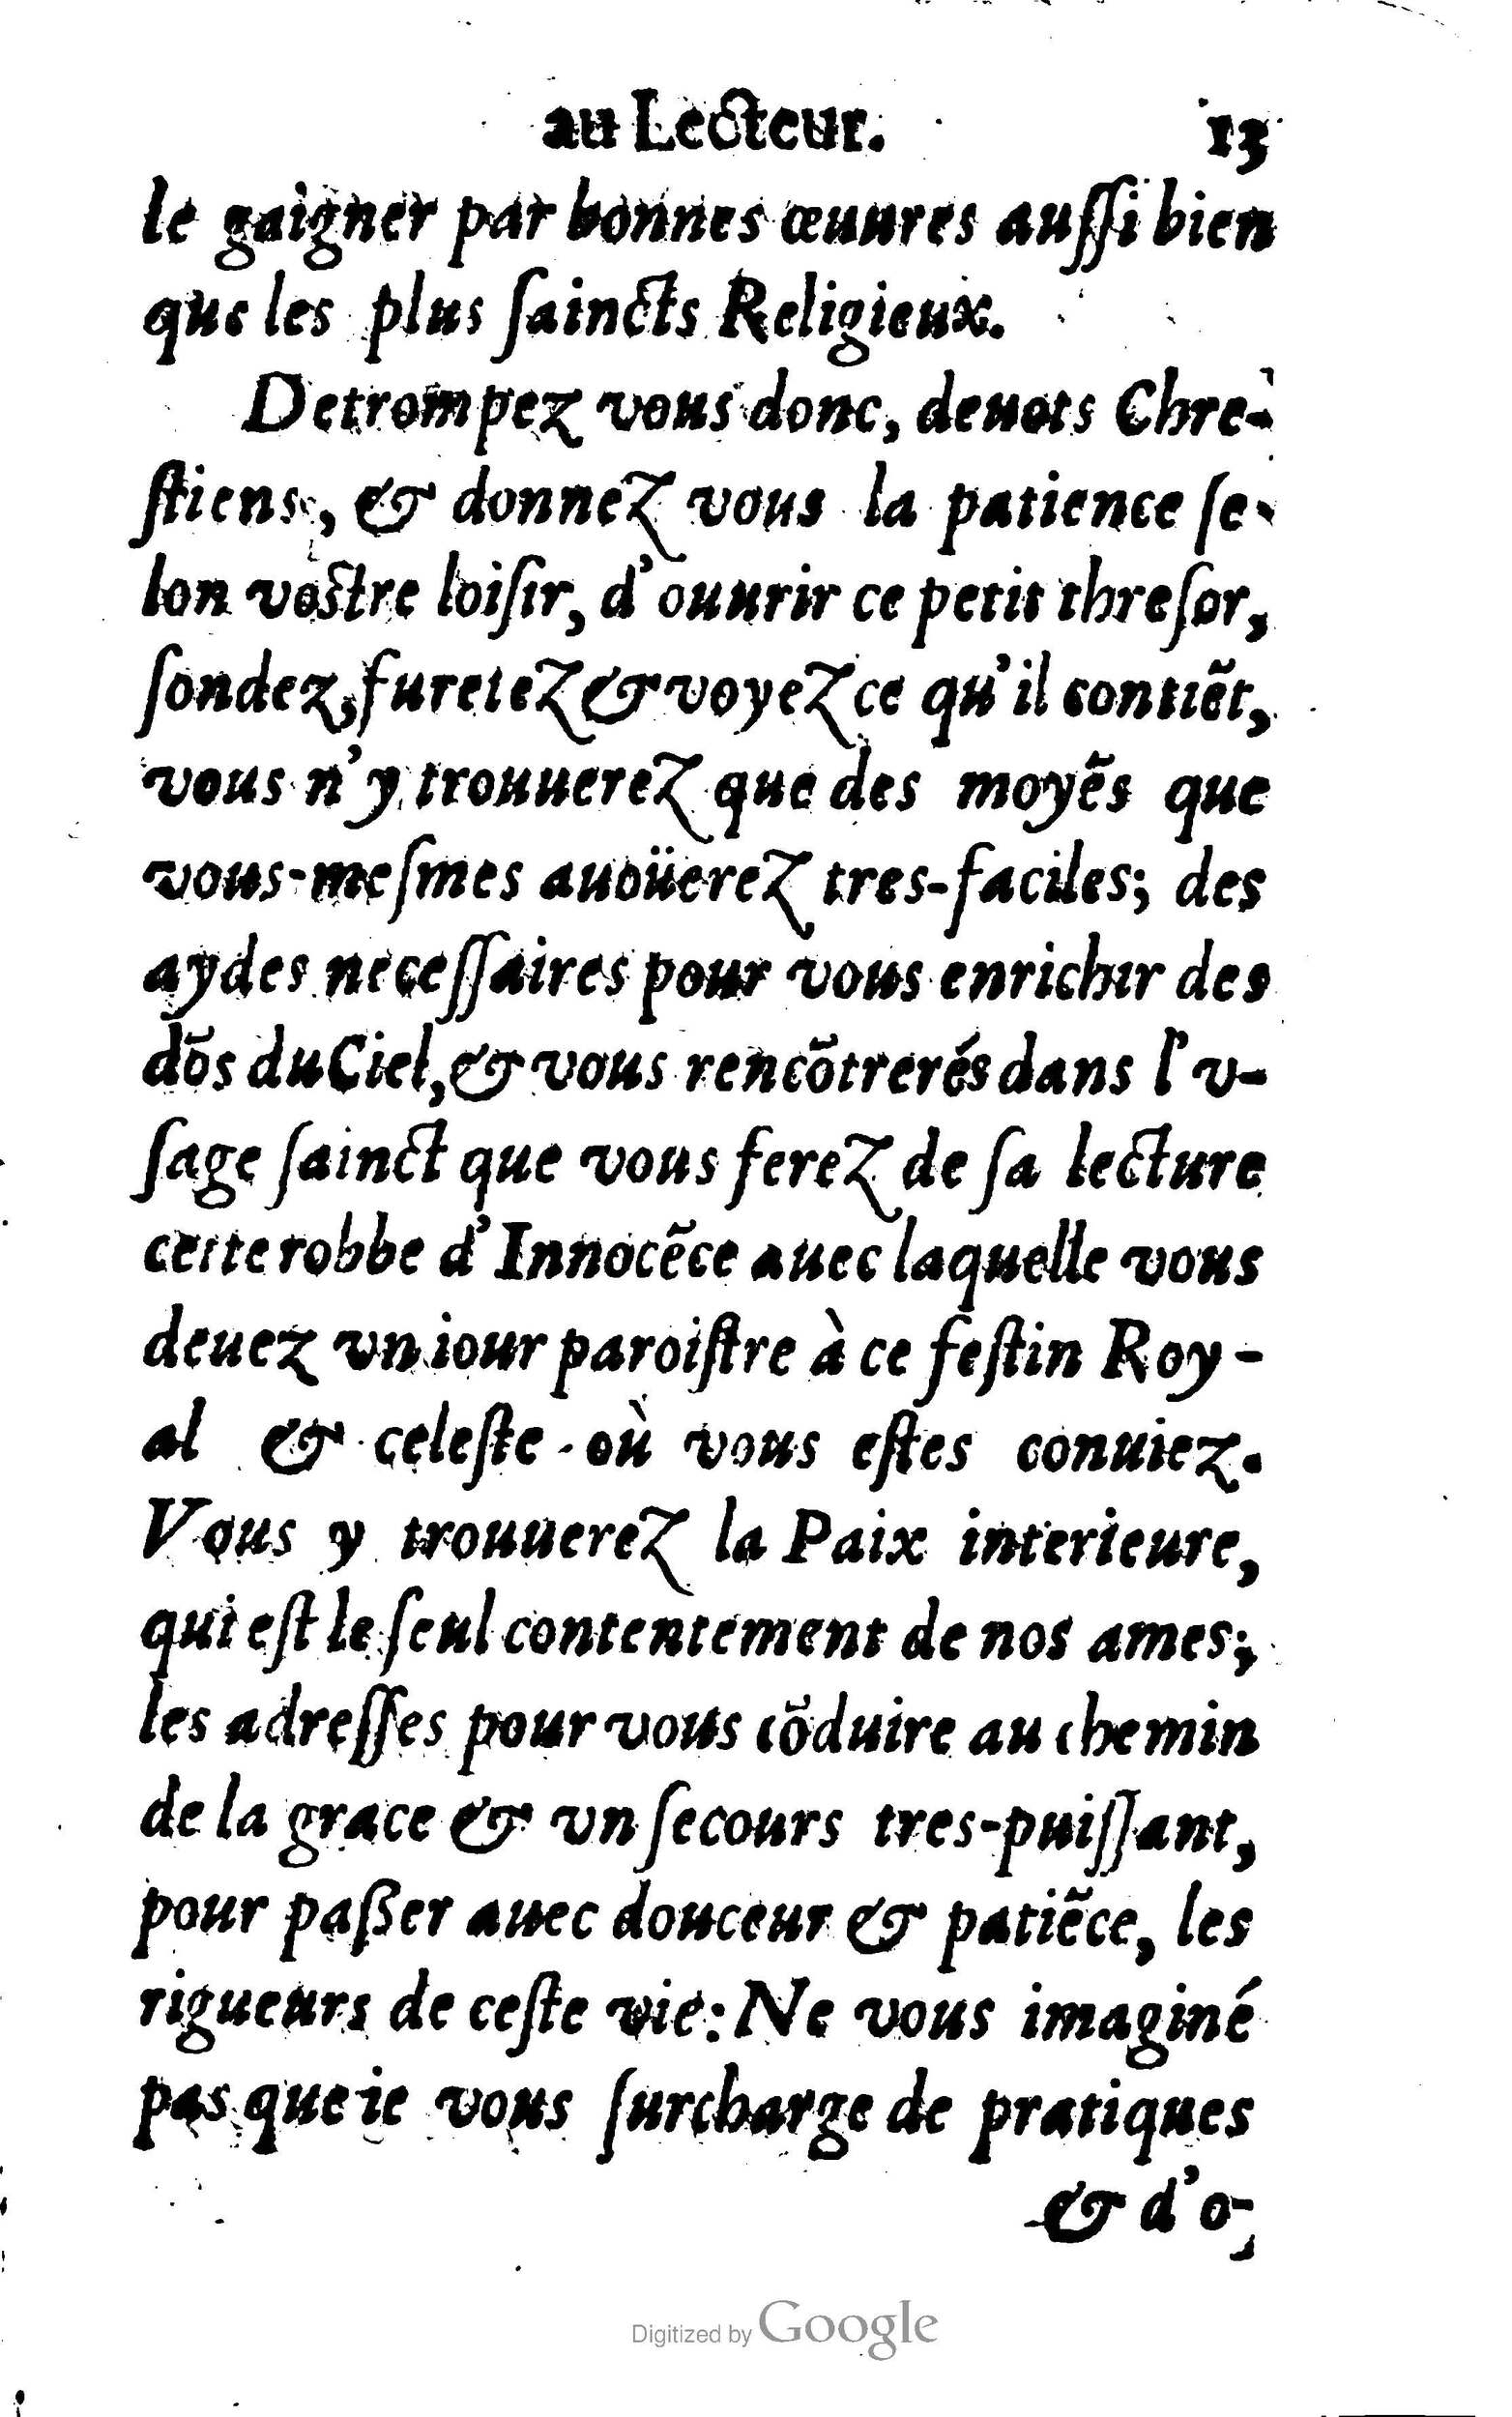 au Lecteur. 13
le gaigner par bonnes œuures auſſi bien
que les plus ſaincts Religieux.
Detrompez vous donc, deuots Chre-
ſtiens, & donnez vous la patience ſe-
lon voſtre loiſir, d'ouurir ce petit threſor,
ſondez, furetez & voyez ce qu'il contiẽt,
vous n'y trouuerez que des moyẽs que
vous-meſmes auoüerez tres-faciles; des
aydes neceſſaires pour vous enrichir des
dõs du Ciel, & vous rencõtrerés dans l'v-
ſage ſainct que vous ferez de ſa lecture
cette robbe d'Innocẽce auec laquelle vous
deuez vn iour paroiſtre à ce feſtin Roy-
al & celeſte où vous eſtes conuiez.
Vous y trouuerez la Paix interieure,
qui eſt le ſeul contentement de nos ames;
les adreſſes pour vous cõduire au chemin
de la grace & vn ſecours tres-puiſſant,
pour paßer auec douceur & patiẽce, les
rigueurs de ceſte vie: Ne vous imaginé
pas que ie vous ſurcharge de pratiques
& d'o-
Digitized by Google